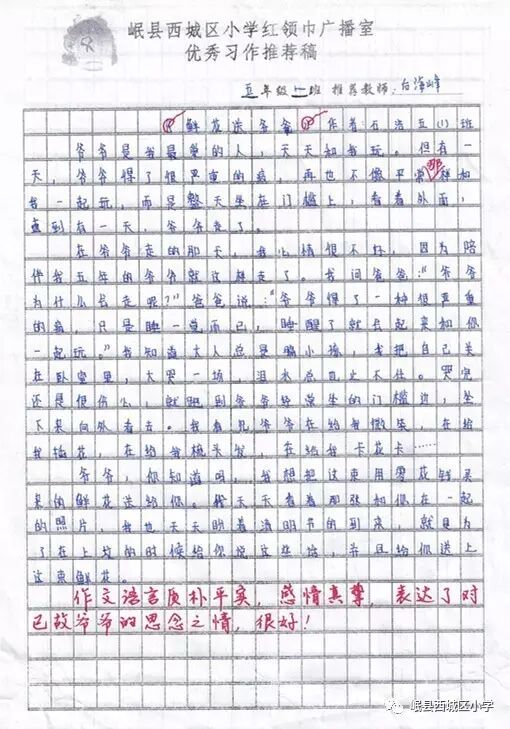 岷县西城区小学红领巾广播室
优秀习作推荐稿
五年级一班 推荐教师:白海峰
鲜花送爷爷 作者石浩五(1)班
爷爷是我最爱的人,天天和我玩。但有一
天,爷爷得了很严重的病,再也不像平常那样和
我一起玩,而是整天坐在门槛上,看着外面,
直到有一天,爷爷走了。
在爷爷走的那天,我心情很不好,因为陪
伴我五年的爷爷就这样走了。我问爸爸:“爷爷
为什么会走呢?”爸爸说:“爷爷得了一种很严重
的病,只是睡一觉而已,睡醒了就会起来和你
一起玩。”我知道大人总是骗小孩,我把自己关
在卧室里,大哭一场,泪水总是止不住。哭完
还是很伤心,就跑到爷爷经常坐的门槛边,坐
下来向外看去。我看见爷爷在给我做菜,在给
我插花,在给我梳头发,在给我卡花卡……
爷爷,你知道吗,我想把这束用零花钱买
来的鲜花送给你。我天天看着那张和你在一起
的照片,我也天天盼着清明节的到来,就是为
了在上坟的时候给你说这些话,并且给你送上
这束鲜花。
作文语言质朴平实,感情真挚,表达了对
已故爷爷的思念之情,很好!
岷县西城区小学